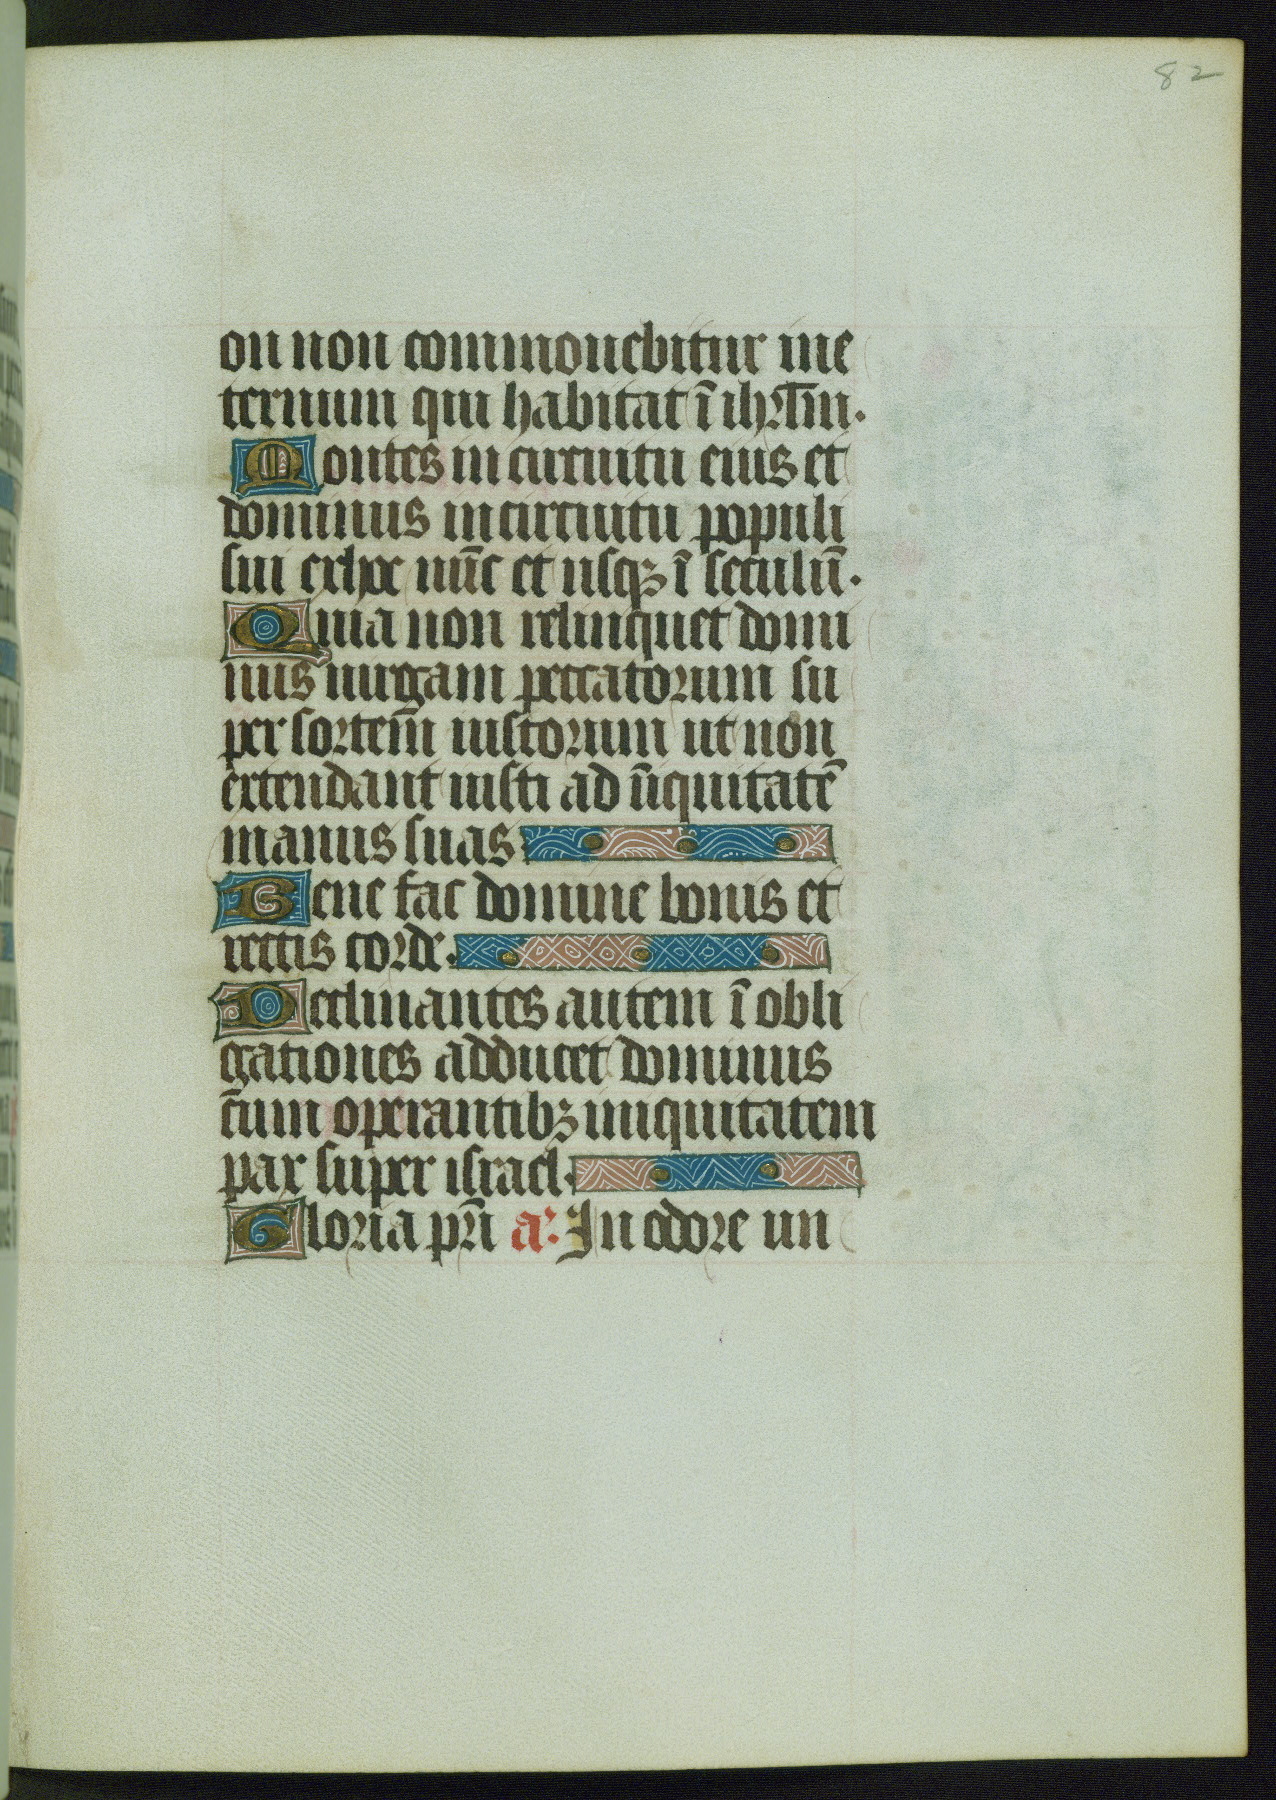 82
on non commouebitur in e
ternum qui habitat ī ihrl̄m.
Montes in circuitu eius et
dominus in circuitu populi
sui ex hoc nūc et usqꝫ ī seculū.
Quia non relinquet domi
nus uirgam peccatorum su
per sortem̄ iustorum ut non
extendant iusti ad īiquitatē
manus suas
Bene fac domine bonis et
rectis corde.
Declinantes autem ī obli
gationes adducet dominus
cūm operantibꝫ iniquitatem
pax super israel.
Gloria pr̄i a. In odore un